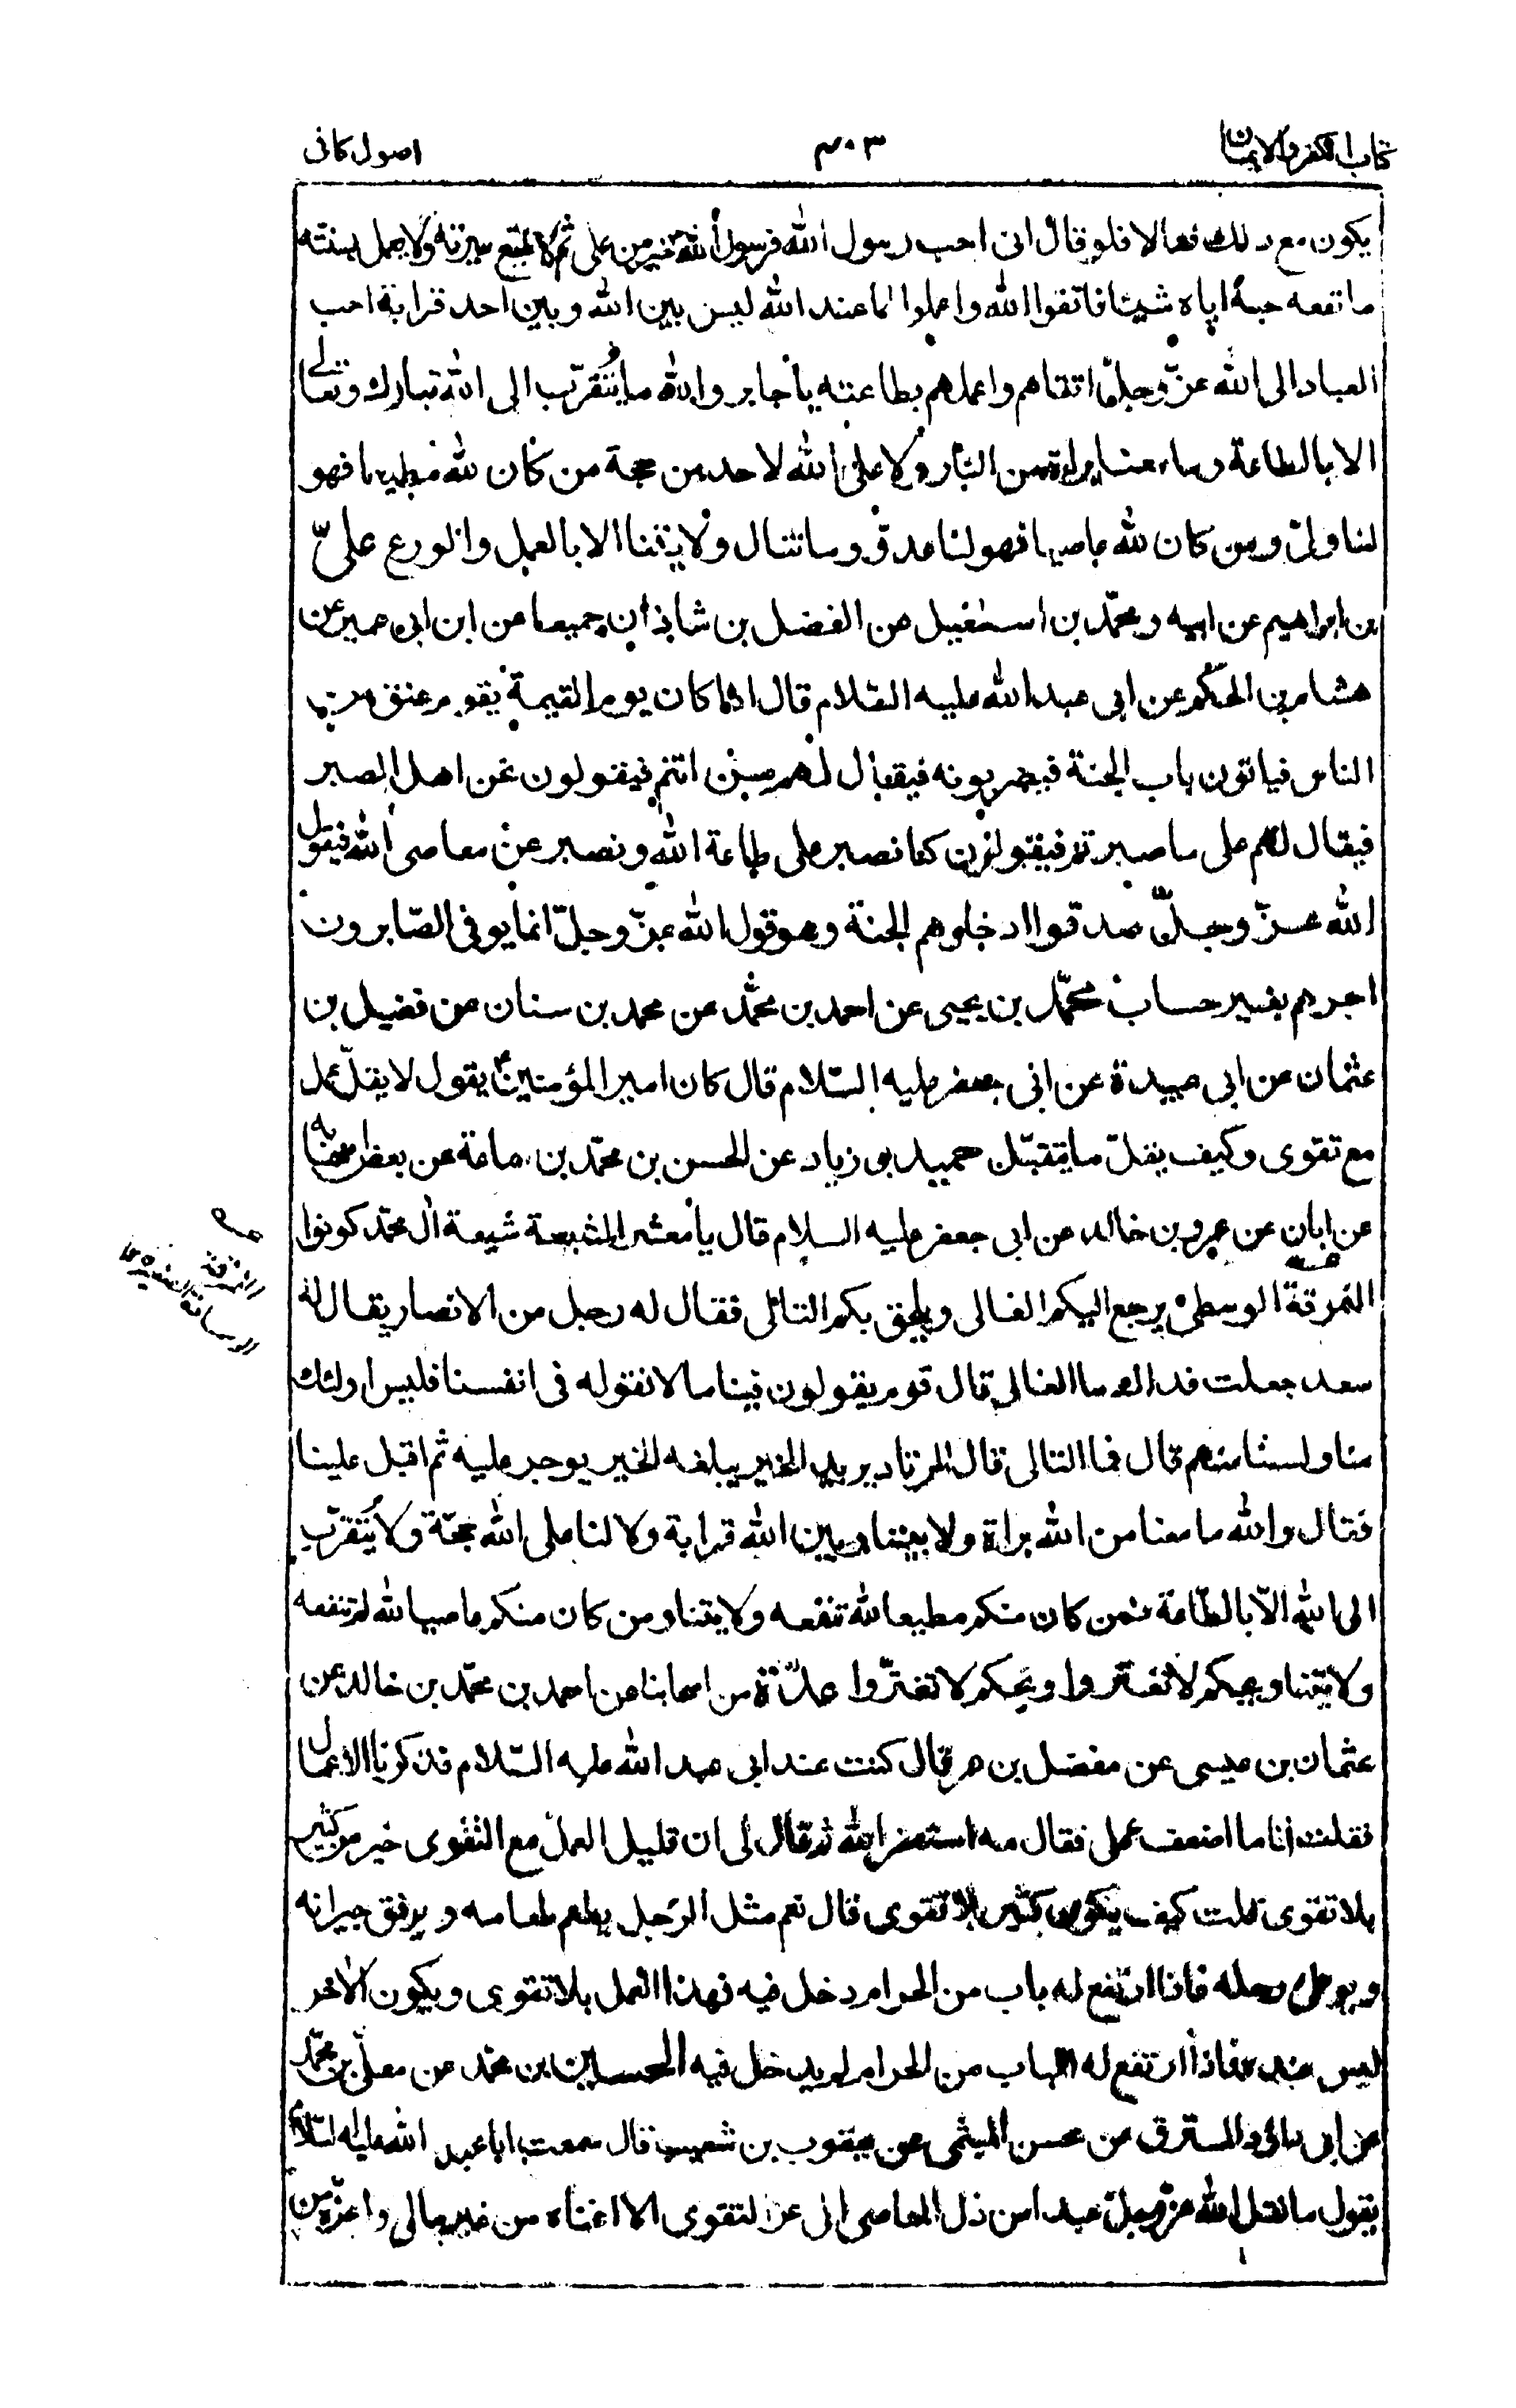 كتاب الكفر والايمان
۴۰۳
اصول كافى
يكون مع ذلك فعالا فلو قال انى احب رسول الله فرسول الله خير من على ثم لا يتبع سيرته ولا يعمل بسنته
ما نفعه حبه اياه شيئا فاتقوا الله واعملوا لما عند الله ليس بين الله وبين احد قرابة احب
العباد الى الله عزّ وجلّ اتقاهم واعملهم بطاعته يا جابر والله ما يُتقرّب الى الله تبارك وتعالى
الا بالطاعة وما معنا براءة من النار ولا على الله لاحد من حجة من كان لله مطيعا فهو
لنا ولىّ ومن كان لله عاصيا فهو لنا عدوّ وما تنال ولايتنا الا بالعمل والورع علىّ
بن ابراهيم عن ابيه ومحمّد بن اسمٰعيل عن الفضل بن شاذان جميعا عن ابن ابى عمير عن
هشام بن الحكم عن ابى عبد الله عليه السّلام قال اذا كان يوم القيمة يقوم عنق من
الناس فياتون باب الجنة فيضربونه فيقال لهم من انتم فيقولون نحن اهل الصبر
فيقال لهم على ما صبرتم فيقولون كنا نصبر على طاعة الله ونصبر عن معاصى الله فيقول
الله عزّ وجلّ صدقوا ادخلوهم الجنة وهو قول الله عزّ وجلّ انما يوفى الصّابرون
اجرهم بغير حساب محمّد بن يحيى عن احمد بن محمّد عن محمد بن سنان عن فضيل بن
عثمان عن ابى عبيدة عن ابى جعفر عليه السّلام قال كان امير المؤمنينؑ يقول لا يقلّ عمل
مع تقوى وكيف يقلّ ما يتقبّل حميد بن زياد عن الحسن بن محمّد بن سماعة عن بعض اصحابه
عن ابان عن عمرو بن خالد عن ابى جعفر عليه السلام قال يا معشر الشيعة شيعة ال محمّد كونوا
النمرقة الوسطى يرجع اليكم الغالى ويلحق بكم التالى فقال له رجل من الانصار يقال له
سعد جعلت فداك ما الغالى قال قوم يقولون فينا ما لا نقوله فى انفسنا فليس اولئك
منا ولسنا منهم قال فما التالى قال المرتاد يريد الخير يبلغه الخير يوجر عليه ثم اقبل علينا
فقال والله ما معنا من الله براة ولا بيننا وبين الله قرابة ولا لنا على الله حجّة ولا يُتقرّب
الى الله الّا بالطّاعة فمن كان منكم مطيعا لله تنفعه ولايتنا ومن كان منكم عاصيا لله لم تنفعه
ولايتنا ويحكم لا تغتروا ويحكم لا تغترّوا عدّة من اصحابنا عن احمد بن محمّد بن خالد عن
عثمان بن عيسى عن مفضل بن عمر قال كنت عند ابى عبد الله عليه السّلام فذكرنا الاعمال
فقلت انا ما اضعف عملى فقال مه استغفر الله ثم قال لى ان قليل العمل مع التقوى خير من كثير
بلا تقوى قلت كيف يكون كثير بلا تقوى قال نعم مثل الرجل يطعم طعامه ويرفق جيرانه
ويوطى رحله فاذا ارتفع له باب من الحرام دخل فيه فهذا العمل بلا تقوى ويكون الاخر
ليس عنده فاذا ارتفع له الباب من الحرام لم يدخل فيه الحسين بن محمّد عن معلّى بن محمّد
عن ابى داؤد المسترق عن محسن الميثمى عن يعقوب بن شعيب قال سمعت ابا عبد الله عليه السّلام
يقول ما نقل الله عزّ وجلّ عبدا من ذل المعاصى الى عز التقوى الا اغناه من غير مال واعزّه من
النمرقة